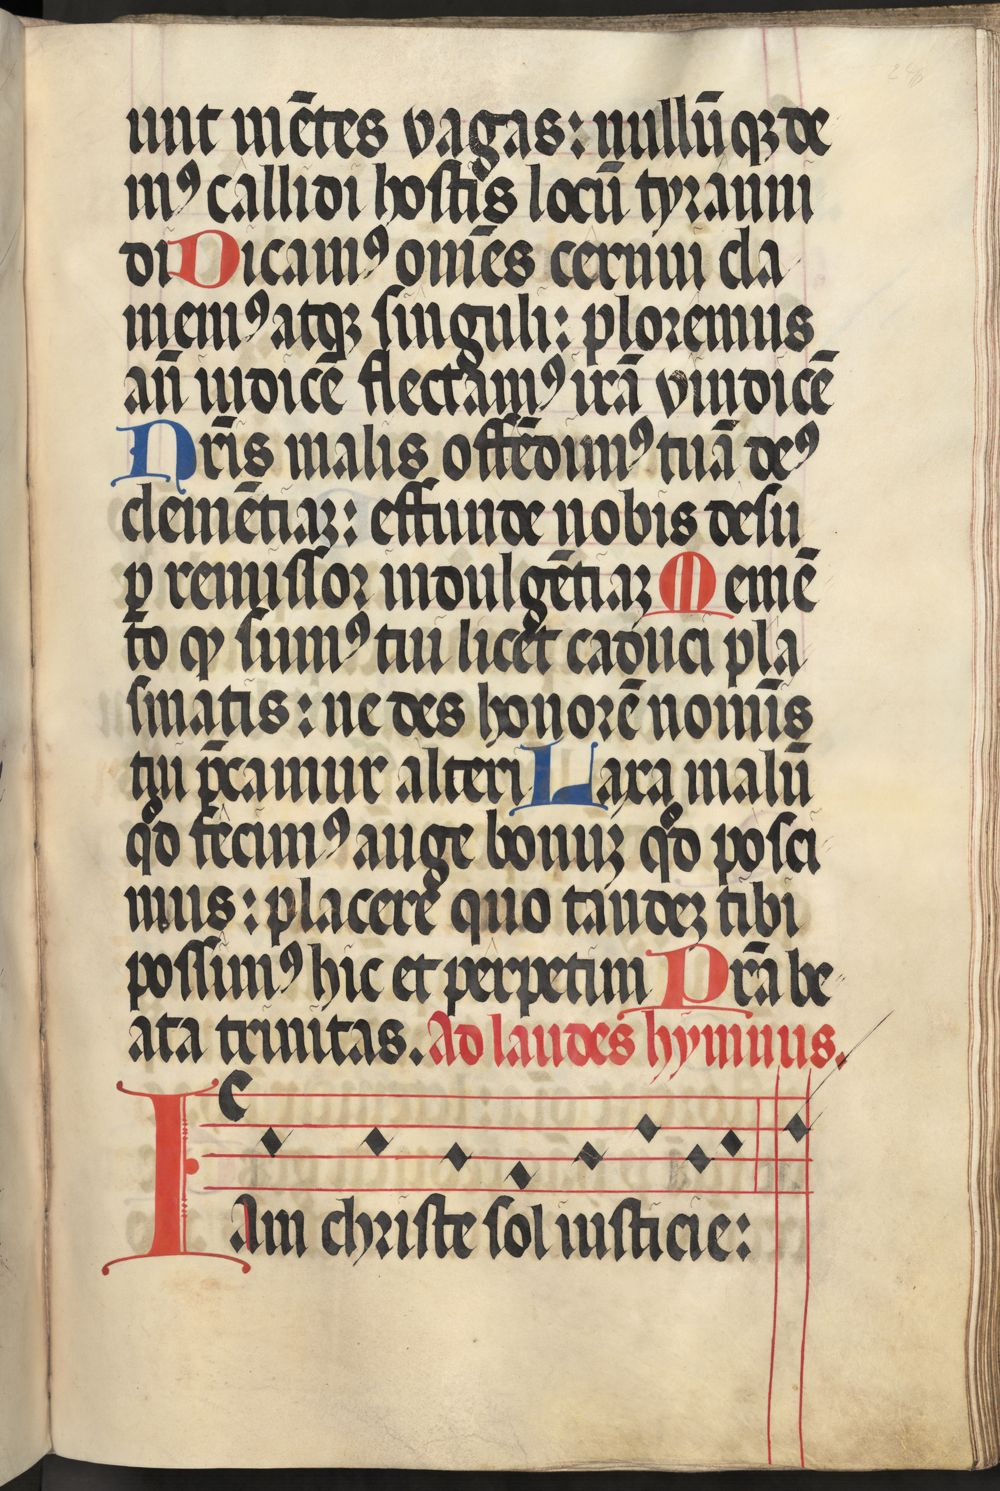 unt mētes vagas: nullūqꝫ de
mꝰ callidi hostis locū tyranni
di Dicamꝰ om̄es cernui cla
memꝰ atqꝫ singuli: ploremus
an̄ iudicē flectamꝰ irā vindicē
Nr̄is malis offēdimꝰ tuā deꝰ
clemētiaꝫ: effunde nobis desu
ꝑ remissor indulgētiaꝫ Memē
to ꝙ sumꝰ tui licet caduci pla
smatis: ne des honorē nomīs
tui p̄camur alteri Laxa malū
qd̊ fecimꝰ auge bonuꝫ qd̊ posci
mus: placere quo tandeꝫ tibi
possimꝰ hic et perpetim Pr̄a be
ata trinitas. Ad laudes hymnus.
IAm christe sol iusticie: